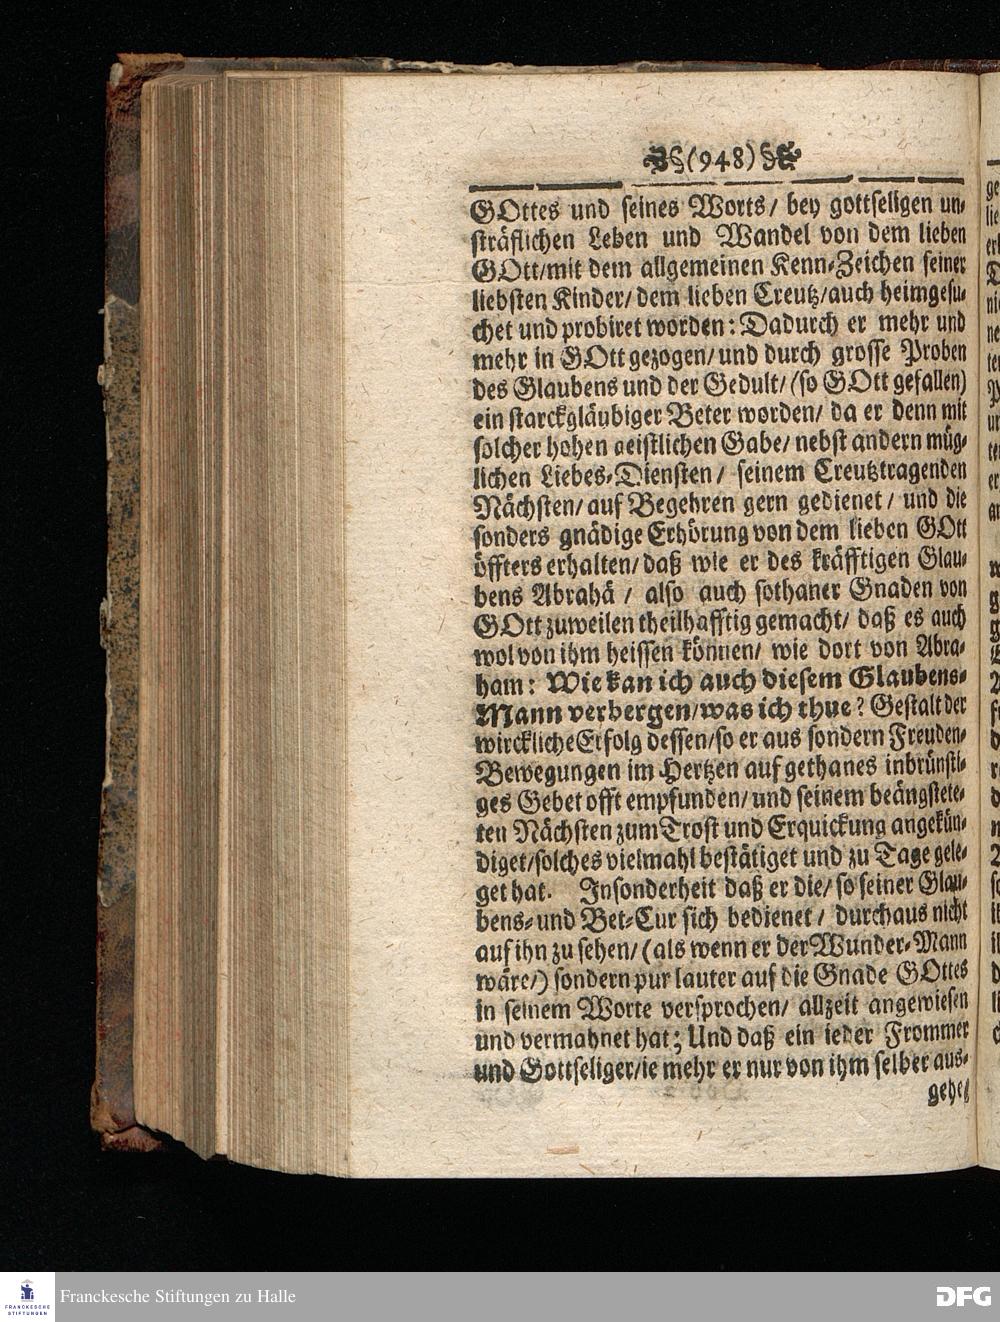 (948)
GOttes und seines Worts/ bey gottseligen un-
sträflichen Leben und Wandel von dem lieben
GOtt/mit dem allgemeinen Kenn-Zeichen seiner
liebsten Kinder/ dem lieben Creutz/auch heimgesu-
chet und probiret worden: Dadurch er mehr und
mehr in GOtt gezogen/ und durch grosse Proben
des Glaubens und der Gedult/ (so GOtt gefallen)
ein starckgläubiger Beter worden/ da er denn mit
solcher hohen geistlichen Gabe/ nebst andern müg-
lichen Liebes-Diensten/ seinem Creutztragenden
Nächsten/ auf Begehren gern gedienet/ und die
sonders gnädige Erhörung von dem lieben GOtt
öffters erhalten/ daß wie er des kräfftigen Glau-
bens Abrahä / also auch sothaner Gnaden von
GOtt zuweilen theilhafftig gemacht/ daß es auch
wol von ihm heissen können/ wie dort von Abra-
ham: Wie kan ich auch diesem Glaubens-
Mann verbergen/was ich thue? Gestalt der
wirckliche Erfolg dessen/so er aus sondern Freuden-
Bewegungen im Hertzen auf gethanes inbrünsti-
ges Gebet offt empfunden/ und seinem beängstete-
ten Nächsten zum Trost und Erquickung angekün-
diget/solches vielmahl bestätiget und zu Tage gele-
get hat. Insonderheit daß er die/ so seiner Glau-
bens- und Bet-Cur sich bedienet/ durchaus nicht
auf ihn zu sehen/ (als wenn er der Wunder-Mann
wäre/) sondern pur lauter auf die Gnade GOttes
in seinem Worte versprochen/ allzeit angewiesen
und vermahnet hat; Und daß ein ieder Frommer
und Gottseliger/ie mehr er nur von ihm selber aus-
gehe/
Franckesche Stiftungen zu Halle
FRANCKESCHE
STIFTUNGEN
DFG